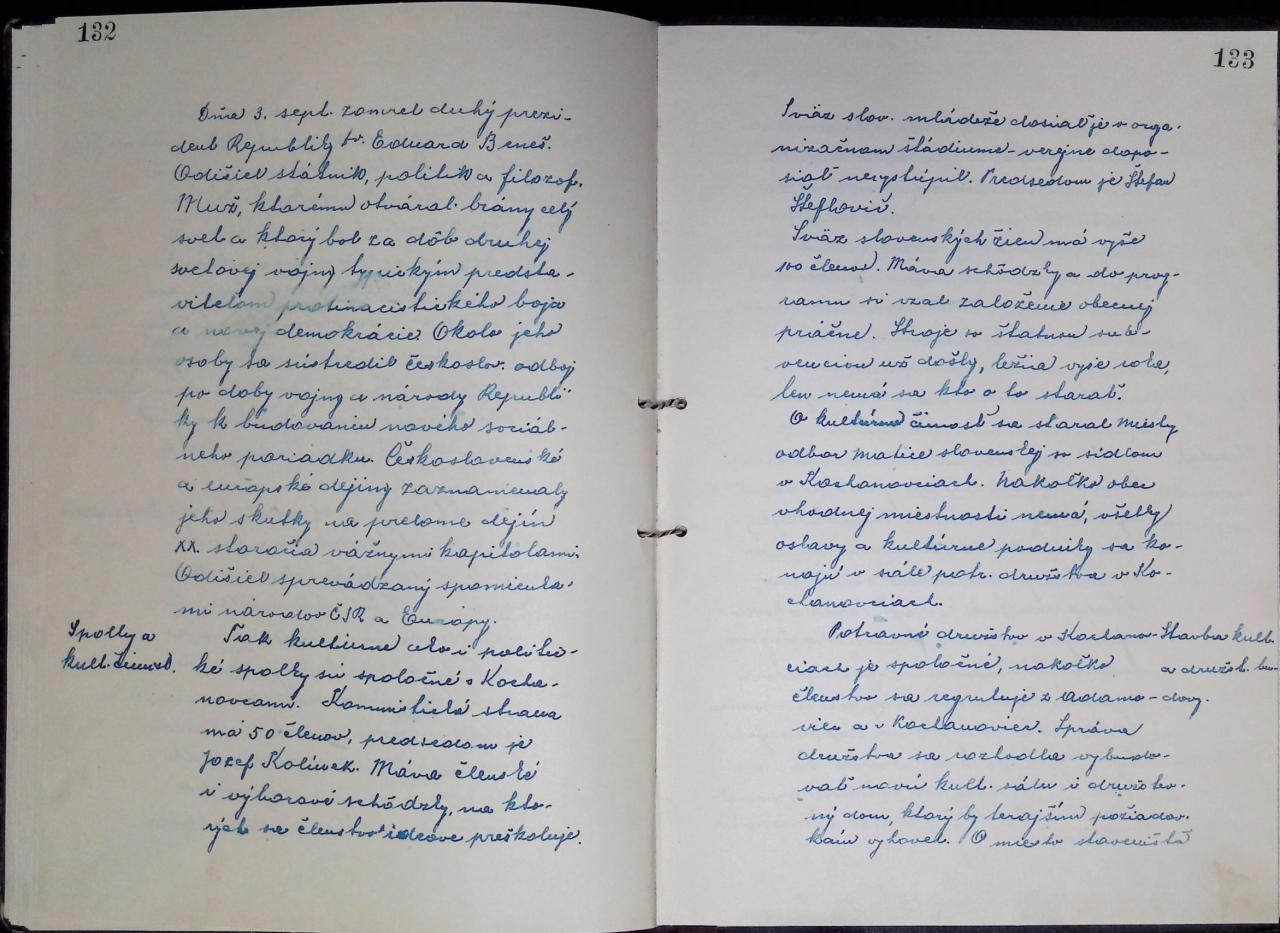 132
Dňa 3. sept. zomrel druhý prezi-
dent Republiky Dr. Eduard Beneš.
Odišiel štátnik, politik a filozof.
Muž, ktorému otváral brány celý
svet a ktorý bol za dôb druhej
svetovej vojny typickým predsta-
viteľom protinacistického boja
a novej demokrácie. Okolo jeho
osoby sa sústredil českoslov. odboj
po doby vojny a národy Republi-
ky k budovaniu nového sociál-
neho poriadku. Československé
a európske dejiny zaznamenaly
jeho skutky na prelome dejín
XX. storočia vážnymi kapitolami.
Odišiel sprevádzaný spomienka-
mi národov ČSR a Európy.
Spolky a
kult. činnosť.
Tak kultúrne ako i politic-
ké spolky sú spoločné s Kocha-
novcami. Komunistická strana
má 50 členov, predsedom je
Jozef Kolínek. Máva členské
i výborové schôdzky, na kto-
rých sa členstvo ideove preškoluje.
133
Sväz slov. mládeže dosiaľ je v orga-
nizačnom štádiume - verejne dopo-
siaľ nevystúpil. Predsedom je Štefan
Šteflovič.
Sväz slovenských žien má vyše
členov. Máva schôdzky a do prog-
ramu si vzal založenie obecnej
práčne. Stroje so štatnou sub-
venciou už došly, ležia vyše roka,
len nemá sa kto o to starať.
O kultúrnu činosť sa staral Miestny
odbor Matice slovenskej so sídlom
v Kochanovciach. Nakoľko obec
vhodnej miestnosti nemá, všetky
oslavy a kultúrne podniky sa ko-
najú v sále potr. družstva v Ko-
chanovciach.
Potravné družstvo v Kochano-
ciach je spoločné, nakoľko
členstvo sa regrutuje z Adamo-
viec a v Kochanoviec. Správa
družstva sa rozhodla vybudo-
vať novú kult. sálu i družstev-
ný dom, ktorý by terajším požiadav-
kám vyhovel. O miesto staveništa
Stavba kult.
a družst. bu-
dovy.